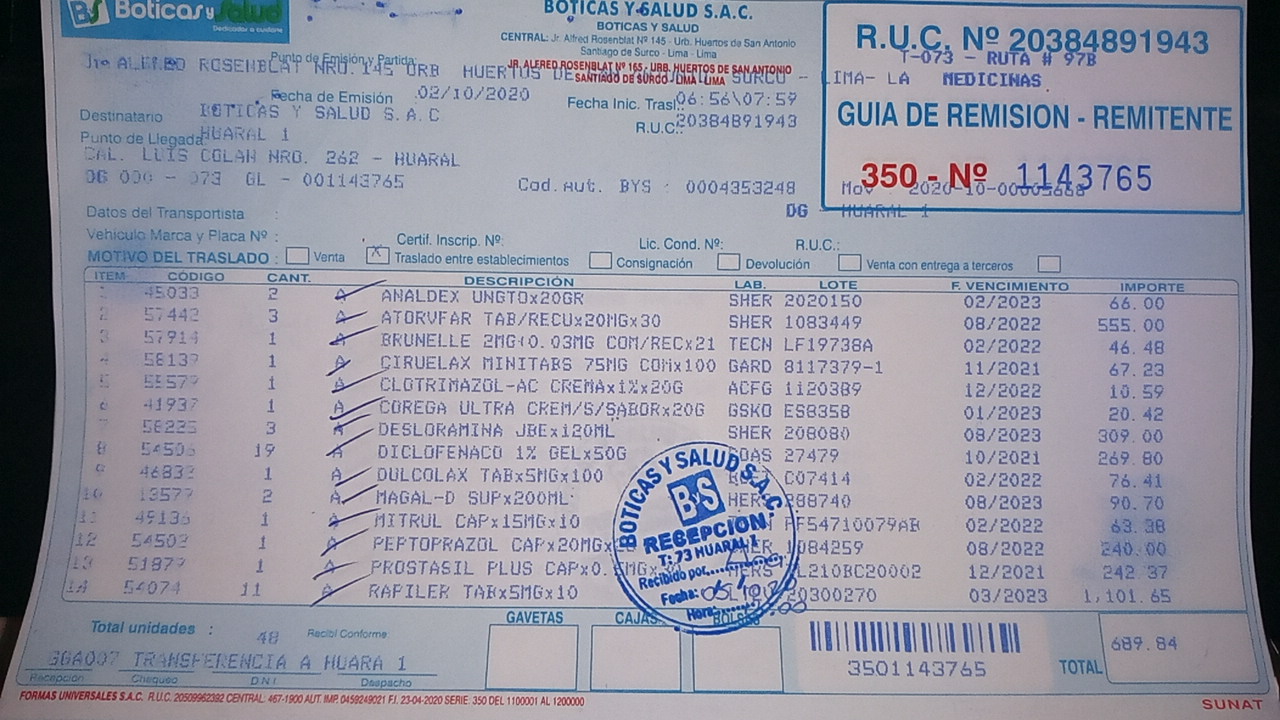 BS Boticas y Salud
Dedicados a cuidarte
BOTICAS Y SALUD S.A.C.
BOTICAS Y SALUD
CENTRAL: Jr. Alfred Rosenblat Nº 145 - Urb. Huertos de San Antonio
Santiago de Surco - Lima - Lima
JR. ALFRED ROSENBLAT Nº 165 - URB. HUERTOS DE SAN ANTONIO
SANTIAGO DE SURCO - LIMA - LIMA
R.U.C. Nº 20384891943
T-073 - RUTA # 97B
MEDICINAS
GUIA DE REMISION - REMITENTE
350 - Nº 1143765
Mov 2020-10-00005668
DG - HUARAL 1
Punto de Emisión y Partida:
Jr. ALFRED ROSENBLAT NRO. 145 URB HUERTOS DE SURCO - LIMA- LA
Fecha de Emisión 02/10/2020 Fecha Inic. Trasl.: 06:56\07:59
Destinatario BOTICAS Y SALUD S.A.C R.U.C.: 20384891943
Punto de Llegada HUARAL 1
CAL. LUIS COLAN NRO. 262 - HUARAL
DG 000 - 073 GL - 001143765 Cod.Aut. BYS : 0004353248
Datos del Transportista :
Vehiculo Marca y Placa Nº : Certif. Inscrip. Nº: Lic. Cond. Nº: R.U.C.:
MOTIVO DEL TRASLADO : Venta X Traslado entre establecimientos Consignación Devolución Venta con entrega a terceros
ITEM CÓDIGO CANT. DESCRIPCIÓN LAB. LOTE F. VENCIMIENTO IMPORTE
1 45033 2 A ANALDEX UNGTOx20GR SHER 2020150 02/2023 66.00
2 57442 3 A ATORVFAR TAB/RECUx20MGx30 SHER 1083449 08/2022 555.00
3 57914 1 A BRUNELLE 2MG+0.03MG COM/RECx21 TECN LF19738A 02/2022 46.48
4 58139 1 A CIRUELAX MINITABS 75MG COMx100 GARD 8117379-1 11/2021 67.23
5 55579 1 A CLOTRIMAZOL-AC CREMAx1%x20G ACFG 1120389 12/2022 10.59
6 41937 1 A COREGA ULTRA CREM/S/SABORx20G GSKO ES8358 01/2023 20.42
7 58225 3 A DESLORAMINA JBEx120ML SHER 208080 08/2023 309.00
8 54506 19 A DICLOFENACO 1% GELx50G 27479 10/2021 269.80
9 46832 1 A DULCOLAX TABx5MGx100 C07414 02/2022 76.41
10 13577 2 A MAGAL-D SUPx200ML HERS 88740 08/2023 90.70
11 49136 1 A MITRUL CAPx15MGx10 PF54710079AB 02/2022 63.38
12 54503 1 A PEPTOPRAZOL CAPx20MGx 1084259 08/2022 240.00
13 51879 1 A PROSTASIL PLUS CAPx0. MERS L210BC20002 12/2021 242.37
14 54074 11 A RAPILER TABx5MGx10 20300270 03/2023 1,101.65
BOTICAS Y SALUD S.A.C.
BYS
RECEPCION
T: 73 HUARAL 1
Recibido por
Fecha: 05/10
Hora:
Total unidades : 48 Recibí Conforme: GAVETAS CAJAS BOLSAS
GBA007 TRANSFERENCIA A HUARA 1
Recepción Chequeo D.N.I. Despacho
3501143765
TOTAL 689.84
FORMAS UNIVERSALES S.A.C. R.U.C. 20509962392 CENTRAL: 467-1900 AUT. IMP. 0459249021 F.I. 23-04-2020 SERIE: 350 DEL 1100001 AL 1200000
SUNAT